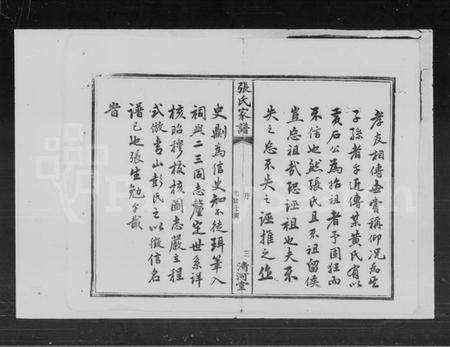 孝友相傳並嘗稱仰况為其
子孫者乎近傳某黄氏有以
黄石公為始祖者予固狂而
不信也然張氏且不祖留侯
豈忘祖哉恐誣祖也夫不
失之忘不失之誣推之作
張氏家譜
序
三 清河堂
史劂為信史知不徒珥筆入
祠與二三同志釐定世系詳
核昭穆校核圖志嚴立程
式倣青山彭氏之以徵信名
譜已也張生勉乎哉
旹